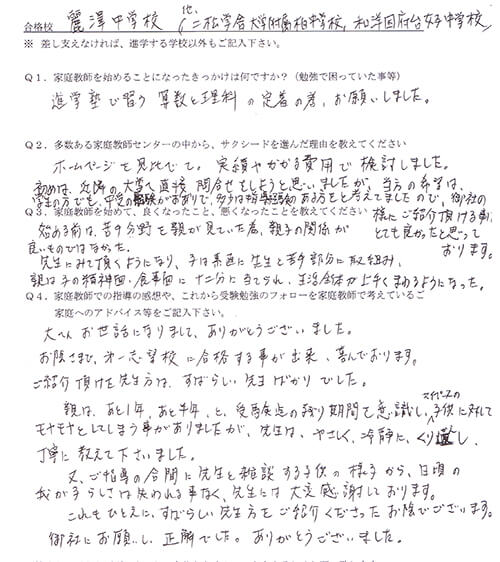 合格校 麗澤中学校 (他、二松学舎大学附属柏中学校、和洋国府台女子中学校)
※ 差し支えなければ、進学する学校以外もご記入下さい。
Q１．家庭教師を始めることになったきっかけは何ですか？（勉強で困っていた事等）
進学塾で習う 算数と理科の定着の為、お願いしました。
Q２．多数ある家庭教師センターの中から、サクシードを選んだ理由を教えてください
ホームページを見比べて、実績やかかる費用で検討しました。
初めは、近隣の大学へ直接問合せをしようと思いましたが、当方の希望は、
学生の方でも、中受の経験がおありで、多少は指導経験のある方をと考えてましたので、御社の
様にご紹介頂ける事は
とても良かったと思って
おります。
Q３．家庭教師を始めて、良くなったこと、悪くなったことを教えてください
始める前は、苦手分野を親が見ていた為、親子の関係が
良いものではなかった。
先生にみて頂くようになり、子は素直に先生と苦手部分に取組み、
親は子の精神面・食事面に十二分に当てられ、生活全体が上手くまわるようになった。
Q４．家庭教師での指導の感想や、これから受験勉強のフォローを家庭教師で考えているご
家庭へのアドバイス等をご記入下さい。
大へんお世話になりまして、ありがとうございました。
お陰さまで、第一志望校に合格する事が出来、喜んでおります。
ご紹介頂けた先生方は、すばらしい先生ばかりでした。
親は、あと1年、あと半年、と、受験を点の残り期間で意識し、マイペースの子供に対して
モヤモヤとしてしまう事がありましたが、先生は、やさしく、冷静に、くり返し、
丁寧に教えて下さいました。
又、ご指導の合間に先生と雑談する子供の様子から、日頃の
我が子らしさは失われる事なく、先生には大変感謝しております。
これもひとえに、すばらしい先生方をご紹介くださったお陰でございます。
御社にお願いし、正解でした。ありがとうございました。